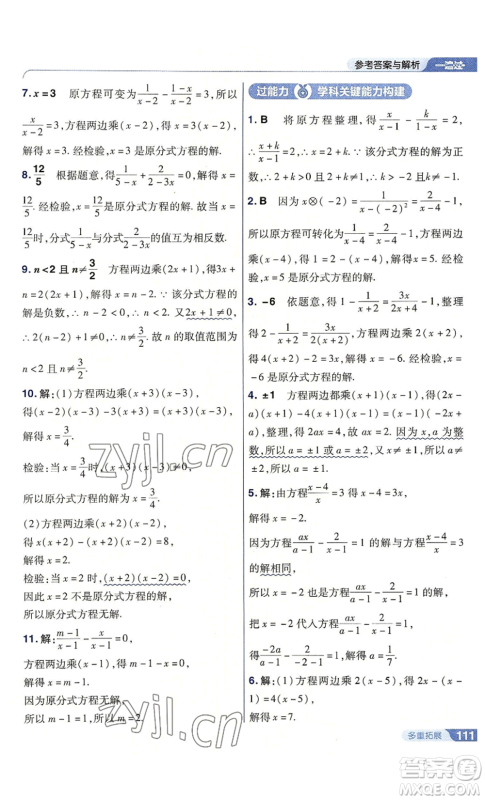 参考答案与解析 一遍过
7. x=3 原方程可变为 1/(x-2) - (-2)/(x-2) = 1, 所以
x/(x-2) = 3, 方程两边乘(x-2), 得 x=3(x-2),
解得 x=3. 经检验, x=3 是原分式方程的解.
8. 12/5 根据题意, 得 1/(5-x) + 2/(2-3x) = 0, 解得 x=
12/5. 经检验, x=12/5 是原分式方程的解. 故当 x=
12/5 时, 分式 1/(5-x) 与分式 2/(2-3x) 的值互为相反数.
9. n<2 且 n≠3/2 方程两边乘(2x+1), 得3x+
n=2(2x+1), 解得 x=n-2. ∵该分式方程的
解是负数, ∴n-2<0, ∴n<2. ∵2x+1≠0,
∴2(n-2)+1≠0, ∴n≠3/2. 故 n 的取值范围为
n<2 且 n≠3/2.
10. 解:(1)方程两边乘(x+3)(x-3),
得(x-3)(x-3)-(x+3)=(x+3)(x-3),
解得 x=3/4.
检验:当 x=3/4 时, (x+3)(x-3)≠0,
所以原分式方程的解为 x=3/4.
(2)方程两边乘(x+2)(x-2),
得 x(x+2)-(x+2)(x-2)=8,
解得 x=2.
检验:当 x=2 时, (x+2)(x-2)=0,
因此 x=2 不是原分式方程的解.
所以原分式方程无解.
11. 解:(m-1)/(x-1) - x/(x-1) = 0,
方程两边乘(x-1), 得 m-1-x=0,
解得 x=m-1.
因为原分式方程无解,
所以 m-1=1, 所以 m=2.
过能力 学科关键能力构建
1. B 将原方程整理, 得 x/(x-1) - k/(1-x) = 2,
∴(x+k)/(x-1) = 2, ∴x=2+k. ∵该分式方程的解为正
数, ∴2+k>0 且 2+k≠1, ∴k>-2 且 k≠-1.
2. B 因为 x⊗(-2) = 1/(x-(-2)²) = 1/(x-4),
所以原方程可转化为 1/(x-4) = 2/(x-4) - 1, 方程两边
乘(x-4), 得 1=2-(x-4), 解得 x=5. 经检
验, x=5 是原分式方程的解.
3. -6 依题意, 得 1 - 1/(x+2) = 3x/(2x+4) - 1, 整理
得 2 - 1/(x+2) = 3x/(2(x+2)), 方程两边乘 2(x+2), 得
4(x+2)-2=3x, 解得 x=-6. 经检验, x=
-6 是原分式方程的解.
4. ±1 方程两边都乘(x+1)(x-1), 得
(x+1)(x-1)-(x-1)=(x+1)(x-1)-(2x-
a), 解得 2ax=4, 所以 ax=4. 因为 x,a 为整
数, 所以 a=±1 或 a=±2 或 a=±4.
5. 解:由方程 (x-4)/a - x-4=3a,
解得 x=-2.
因为方程 ax/(a-1) - 2/(1-x) = 1 与方程 (x-4)/x = 3
的解相同,
所以 x=-2 是方程 ax/(a-1) - 2/(1-x) = 1 的解,
把 x=-2 代入方程 ax/(a-1) - 2/(1-x) = 1,
得 -2a/(a-1) - 2/(-2-1) = 1, 解得 a=1/7.
6. 解:(1)方程两边乘(x-2), 得5+3(x-2)=
解得 x=7.
zyjl.cn
zyjl.cn
多重拓展 111
答案圈
MXQE.COM